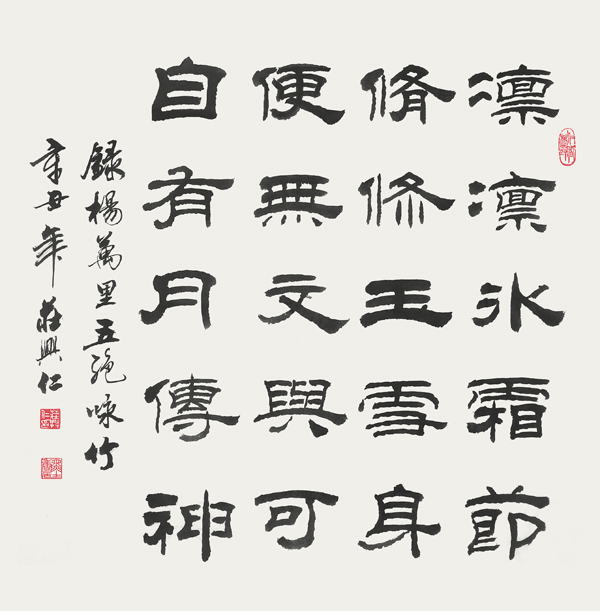 凛凛冰霜節
脩修玉雪身
便無文與可
自有月傳神
録楊萬里五絶咏竹
辛丑年莊興仁